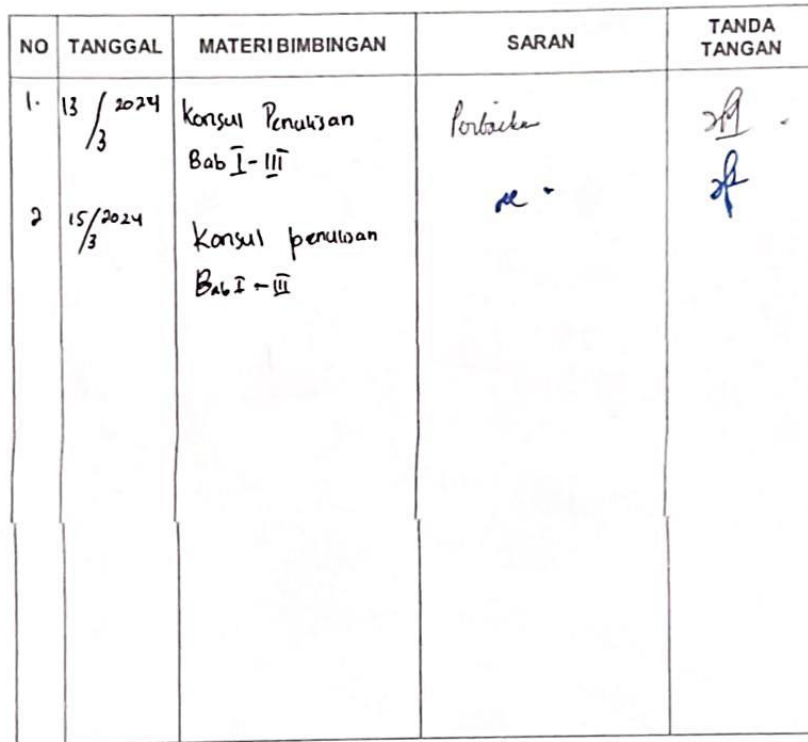 NO TANGGAL MATERI BIMBINGAN SARAN TANDA TANGAN
1. 13/3 2024 Konsul Penulisan
Bab I - III
2 15/3 2024 Konsul penulisan
Bab I - III